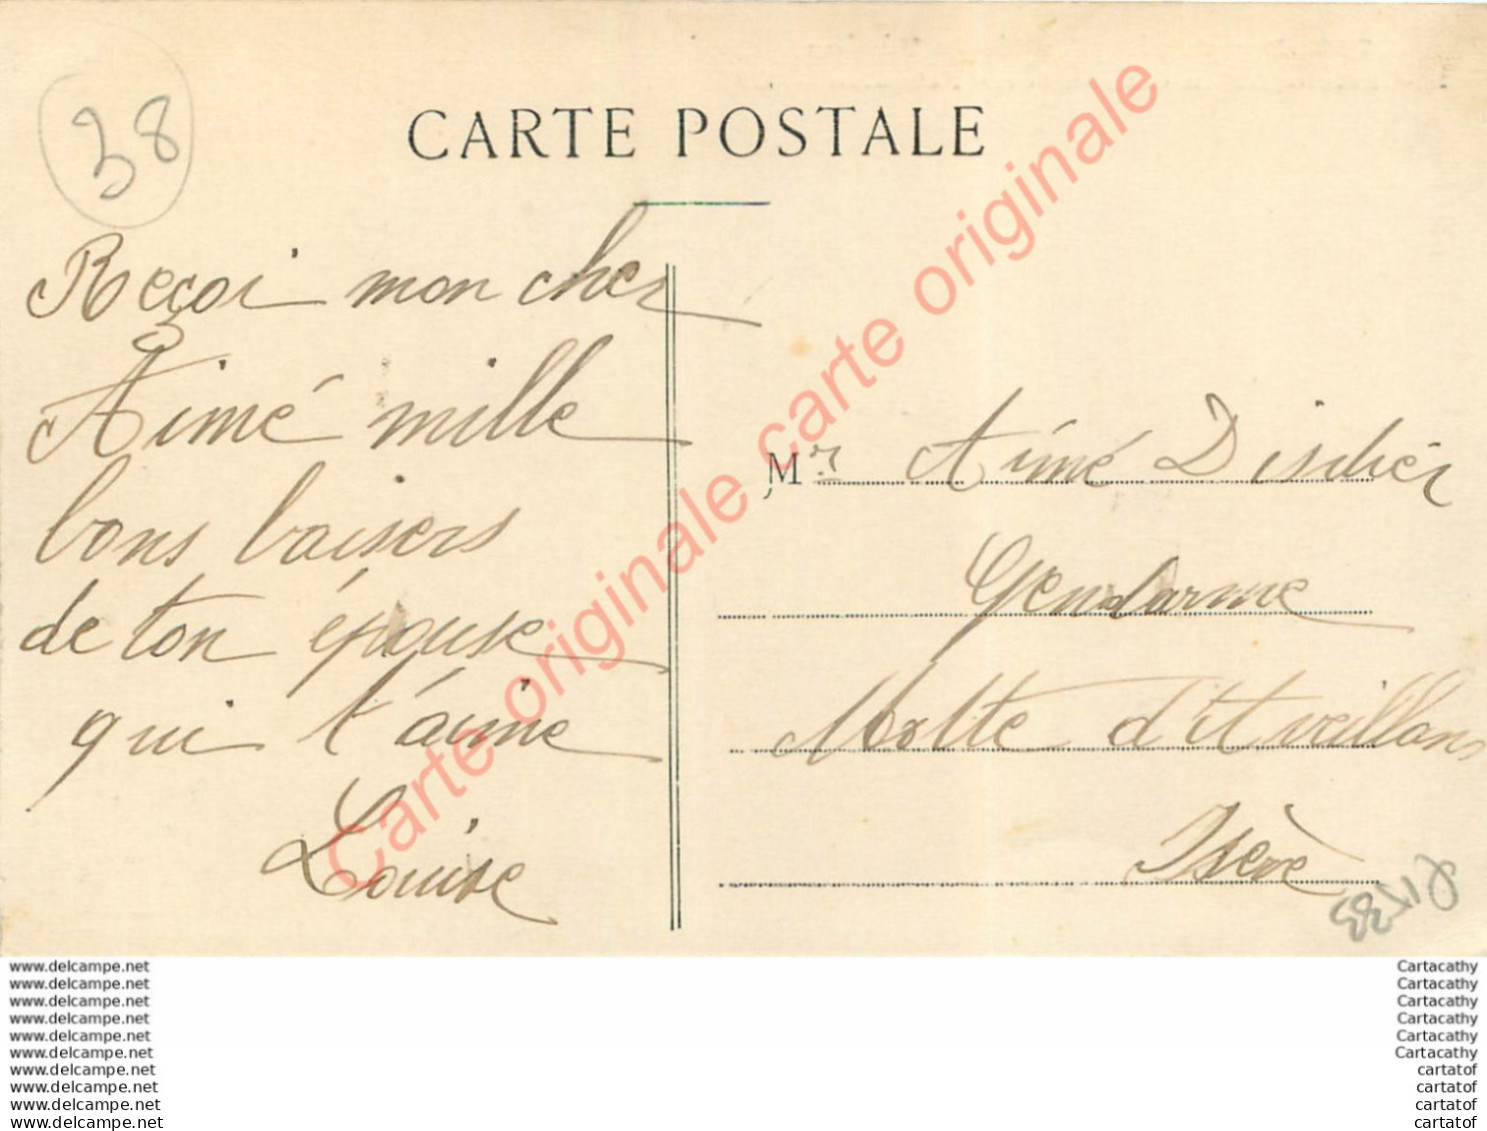 38
CARTE POSTALE
Reçoi mon cher
Aimé mille
bons baisers
de ton épouse
qui t'aime
Louise
Mr Aimé Discher
Gendarme
Motte d'Aveillans
Isère
Carte originale carte originale carte originale
www.delcampe.net
www.delcampe.net
www.delcampe.net
www.delcampe.net
www.delcampe.net
www.delcampe.net
www.delcampe.net
www.delcampe.net
www.delcampe.net
www.delcampe.net
Cartacathy
Cartacathy
Cartacathy
Cartacathy
Cartacathy
Cartacathy
cartatof
cartatof
cartatof
cartatof